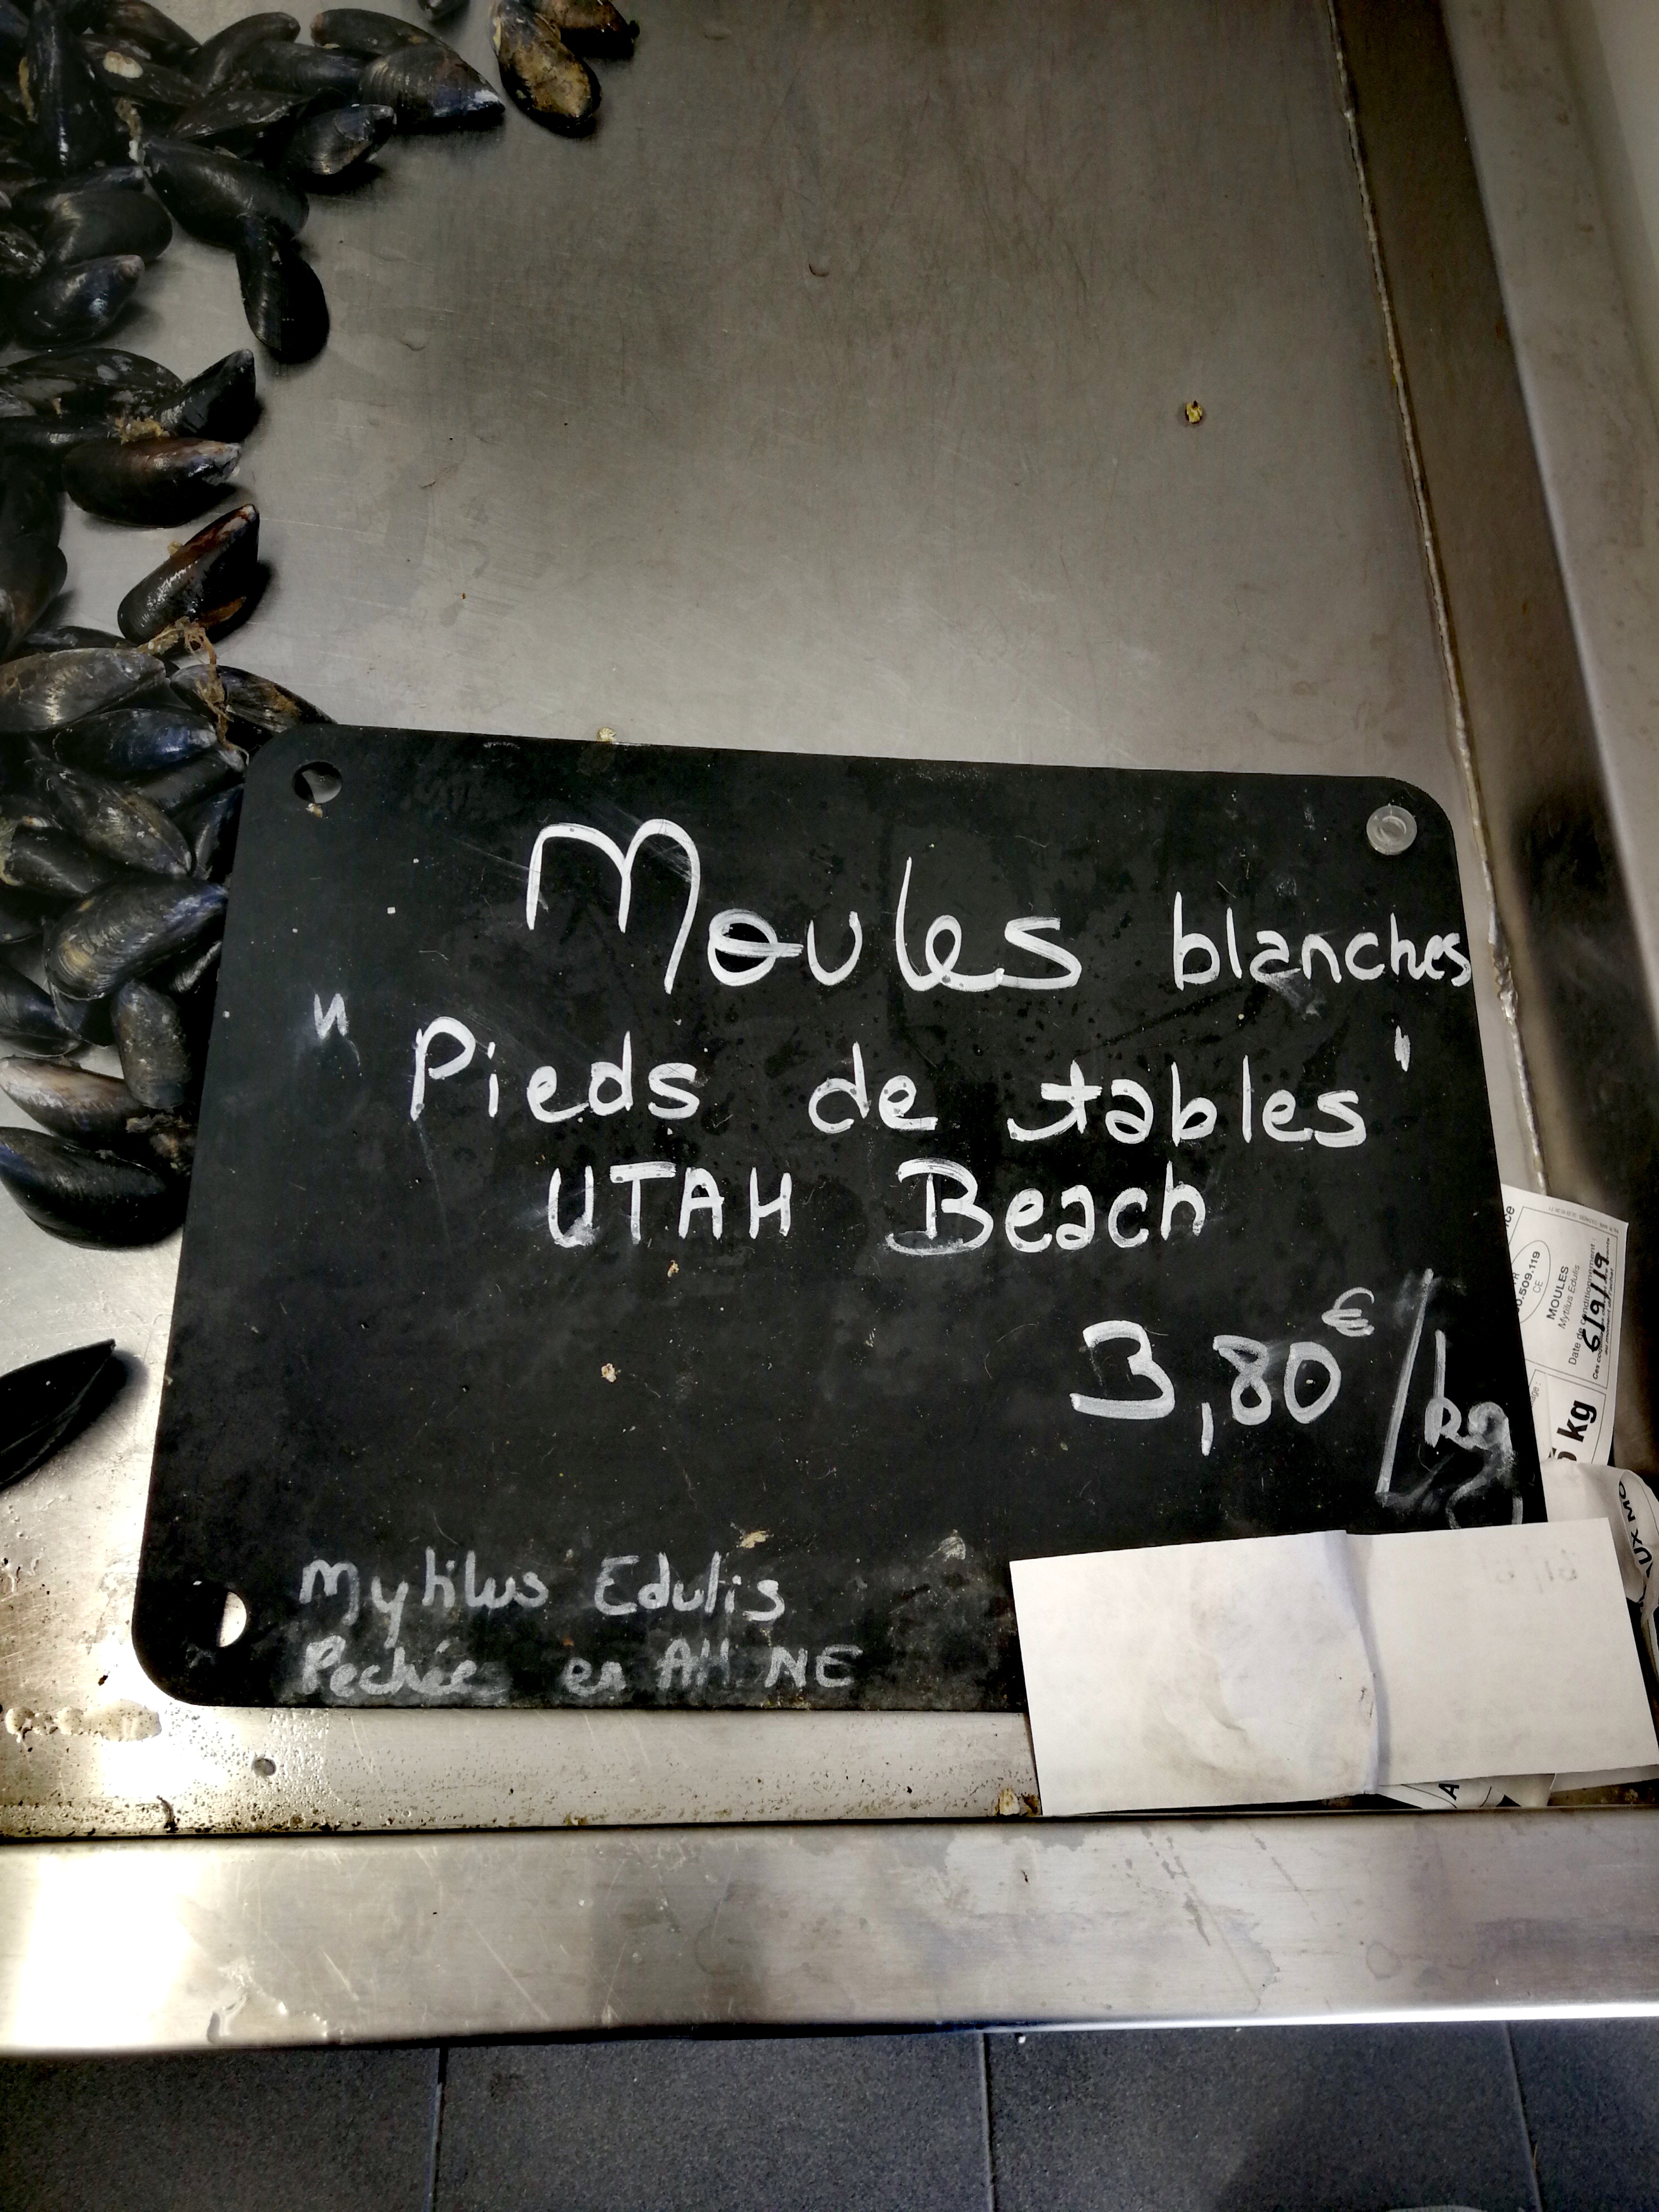 Moules blanches
"Pieds de tables"
UTAH Beach
3,80€/kg
Mytilus Edulis
Pechée en Atl NE
.509.119
CE
MOULES
Mytilus Edulis
Date de conditionnement :
6/9/19
kg
UX MO
A